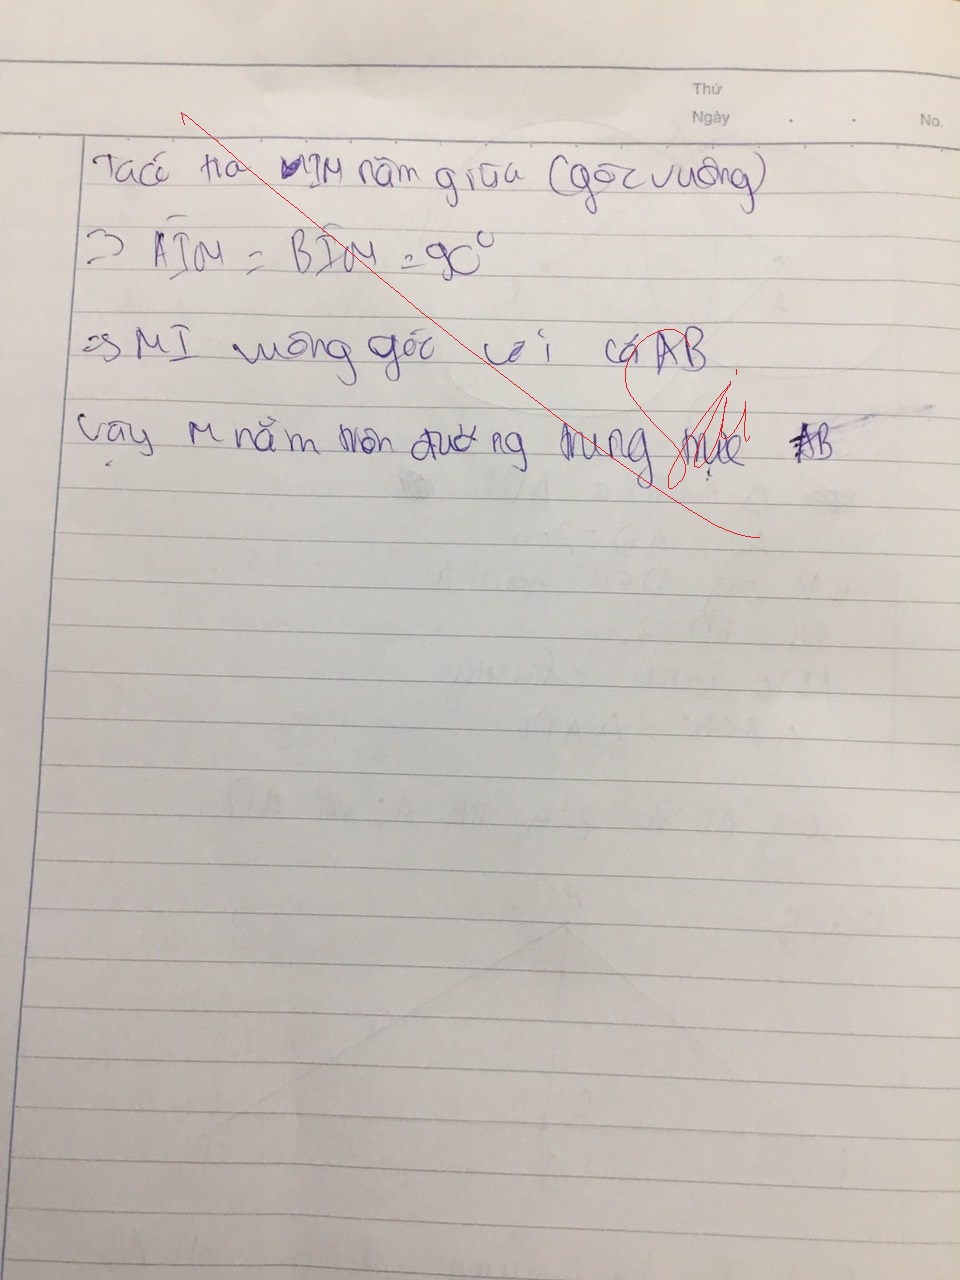 Thứ
Ngày . . No.
Ta có tia IM nằm giữa (góc vuông)
=> AIM = BIM = 90⁰
=> MI vuông góc với cả AB
Vậy M nằm trên đường trung trực AB